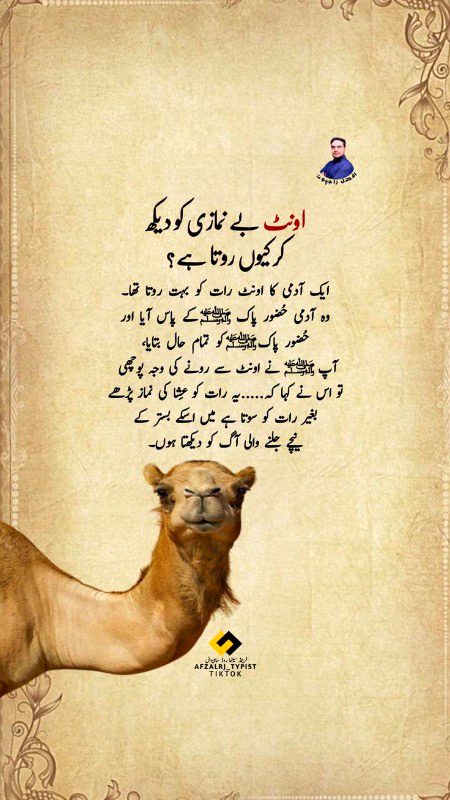 افضل راجپوت
اونٹ بے نمازی کو دیکھ
کر کیوں روتا ہے؟
ایک آدمی کا اونٹ رات کو بہت روتا تھا۔
وہ آدمی حُضور پاک ﷺ کے پاس آیا اور
حُضور پاک ﷺ کو تمام حال بتایا،
آپ ﷺ نے اونٹ سے رونے کی وجہ پوچھی
تو اس نے کہا کہ.....یہ رات کو عِشا کی نماز پڑھے
بغیر رات کو سوتا ہے میں اسکے بستر کے
نیچے جلنے والی آگ کو دیکھتا ہوں۔
AFZALRJ_TYPIST
TIKTOK